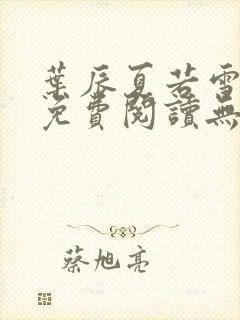 葉辰夏若雪
免費閱讀無
蔡旭亮